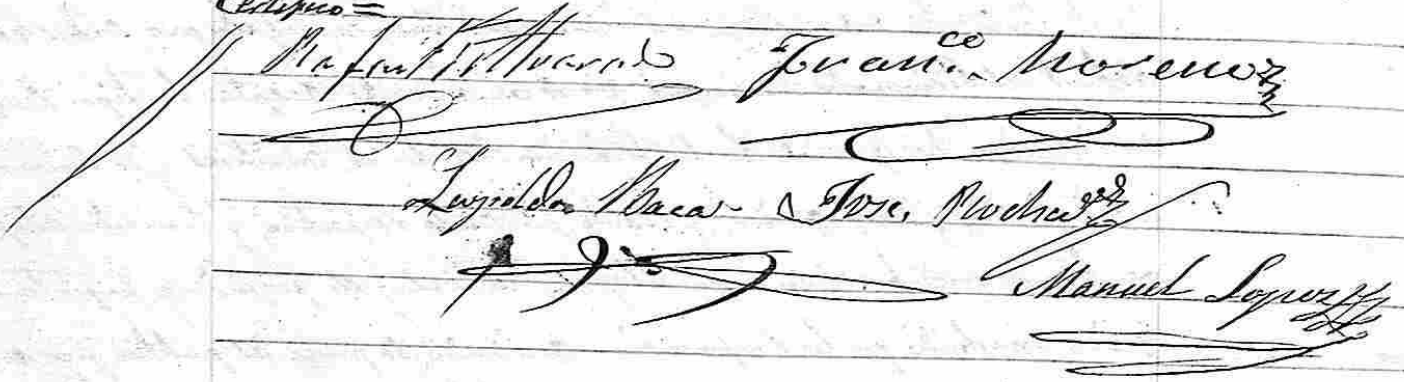 Certifico=
Rafael F. Alvarado Franco. Moreno
Leopoldo Baca Jose, Rocha
Manuel Lopez